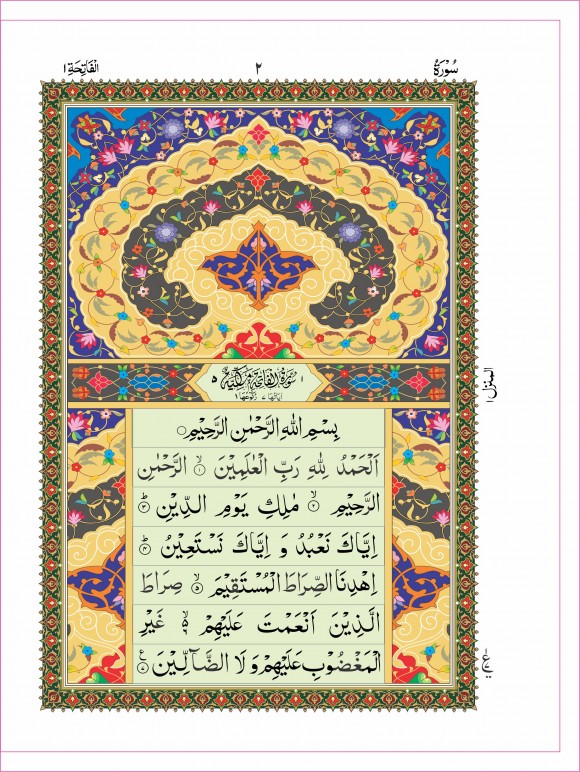 سُوْرَةُ ٢ اَلْفَاتِحَة ١
١ سُوْرَةُ الْفَاتِحَةِ مَكِّيَّةٌ ٥
اٰيَاتُهَا ٧ رُكُوْعُهَا ١
بِسْمِ اللّٰهِ الرَّحْمٰنِ الرَّحِيْمِ
اَلْحَمْدُ لِلّٰهِ رَبِّ الْعٰلَمِيْنَ ١ الرَّحْمٰنِ
الرَّحِيْمِ ٢ مٰلِكِ يَوْمِ الدِّيْنِ ٣ ط
اِيَّاكَ نَعْبُدُ وَ اِيَّاكَ نَسْتَعِيْنُ ٤ ط
اِهْدِنَا الصِّرَاطَ الْمُسْتَقِيْمَ ٥ صِرَاطَ
الَّذِيْنَ اَنْعَمْتَ عَلَيْهِمْ ٦ غَيْرِ
الْمَغْضُوْبِ عَلَيْهِمْ وَ لَا الضَّآلِّيْنَ ع
المنزل ١